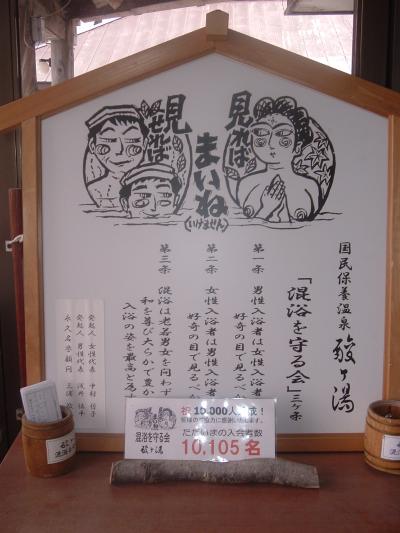 見せれば
見れば
まいね
(いけません)
国民保養温泉 酸ヶ湯
「混浴を守る会」三ヶ条
第一条 男性入浴者は女性入浴者
好奇の目で見るべか
第二条 女性入浴者は男性入浴者
好奇の目で見るべか
第三条 混浴は老若男女を問わず
和を尊び大らかで豊か
入浴の姿を最高と為
発起人 女性代表 中村 哲子
発起人 男性代表 浅井
永久名誉顧問 三浦
祝 10,000人達成!
皆様のご協力に感謝いたします。
ただいまの入会者数
10,105 名
混浴を守る会
酸ヶ湯